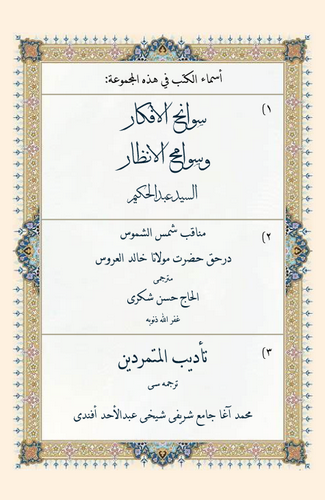 أسماء الكتب في هذه المجموعة:
١)
سوانح الأفكار
وسوامح الأنظار
السيد عبد الحكيم
٢)
مناقب شمس الشموس
درحق حضرت مولانا خالد العروس
مترجمى
الحاج حسن شكرى
غفر الله ذنوبه
٣)
تأديب المتمردين
ترجمه سى
محمد آغا جامع شريفى شيخى عبدالأحد أفندى